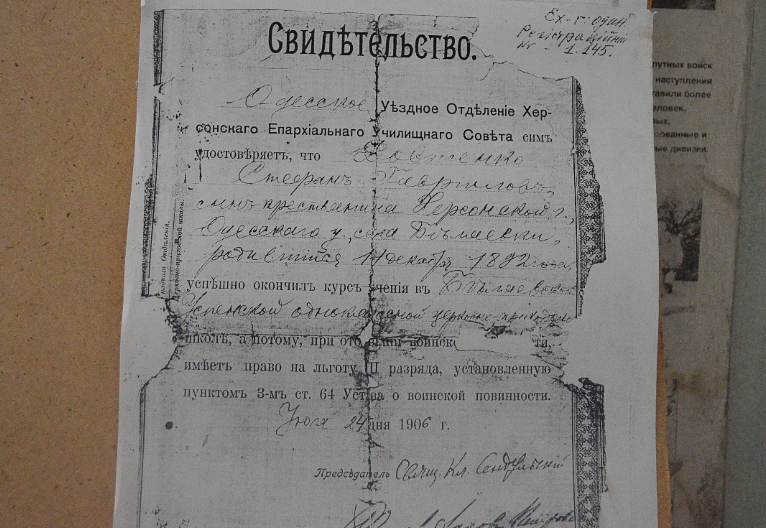 Ex. г. одный
№ 1.145.
Свидѣтельство.
Одесское Уѣздное Отдѣленіе Хер-
сонскаго Епархіальнаго Училищнаго Совѣта симъ
удостовѣряетъ, что Довженко
Стефанъ Гавриловъ,
сынъ крестьянина Херсонской г.,
Одесскаго у., села
родившійся 14 декабр. 1892 года,
успѣшно окончилъ курсъ ученія въ
Успенской одноклассной церковно-приходск.
школѣ, а потому, при от воинск ти,
имѣетъ право на льготу II разряда, установленную
пунктомъ 3-мъ ст. 64 Устава о воинской повинности.
Іюня 24 дня 1906 г.
Предсѣдатель Свящ. Кл.
путных войск
наступления
тавили более
еловек.
ных,
ованные и
ые дивизии.